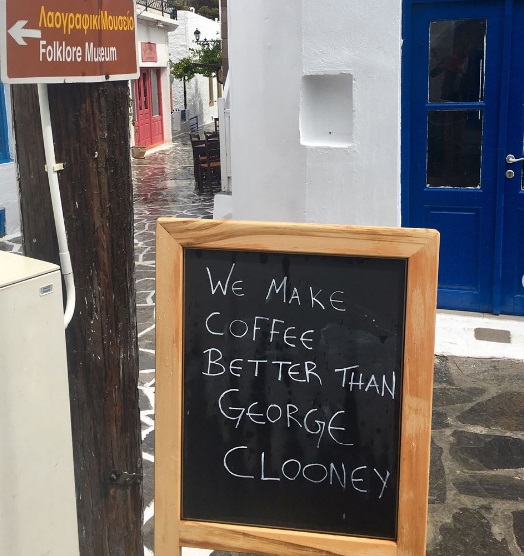 Λαογραφικό Μουσείο
Folklore Museum
WE MAKE
COFFEE
BETTER THAN
GEORGE
CLOONEY